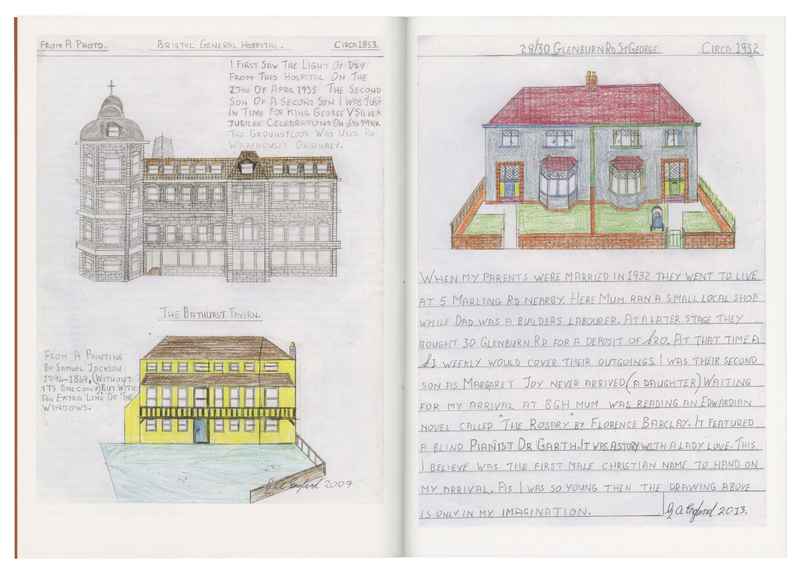 FROM A PHOTO. BRISTOL GENERAL HOSPITAL. CIRCA 1853.
I FIRST SAW THE LIGHT OF DAY
FROM THIS HOSPITAL ON THE
2ND OF APRIL 1935 THE SECOND
SON OF A SECOND SON I WAS JUST
IN TIME FOR KING GEORGE V SILVER
JUBILEE CELEBRATIONS ON
THE GROUNDFLOOR WAS USED AS
WAREHOUSES ORIGINALLY.
THE BATHURST TAVERN.
FROM A PAINTING
BY SAMUEL JACKSON
1794-1869. (WITHOUT
ITS BALCONY) BUT WITH
AN EXTRA LINE OF
WINDOWS.
2009
29/30 GLENBURN RD ST GEORGE. CIRCA 1932
WHEN MY PARENTS WERE MARRIED IN 1932 THEY WENT TO LIVE
AT 5 MARLING RD NEARBY. HERE MUM RAN A SMALL LOCAL SHOP
WHILE DAD WAS A BUILDERS LABOURER. AT A LATER STAGE THEY
BOUGHT 30 GLENBURN RD FOR A DEPOSIT OF £20. AT THAT TIME A
£1 WEEKLY WOULD COVER THEIR OUTGOINGS. I WAS THEIR SECOND
SON AS MARGARET JOY NEVER ARRIVED (A DAUGHTER) WAITING
FOR MY ARRIVAL AT BGH MUM WAS READING AN EDWARDIAN
NOVEL CALLED "THE ROSARY" BY FLORENCE BARCLAY. IT FEATURED
A BLIND PIANIST DR GARTH. IT WAS A STORY WITH A LADY LOVE. THIS
I BELIEVE WAS THE FIRST MALE CHRISTIAN NAME TO HAND ON
MY ARRIVAL. AS I WAS SO YOUNG THEN THE DRAWING ABOVE
IS ONLY IN MY IMAGINATION. 2013.